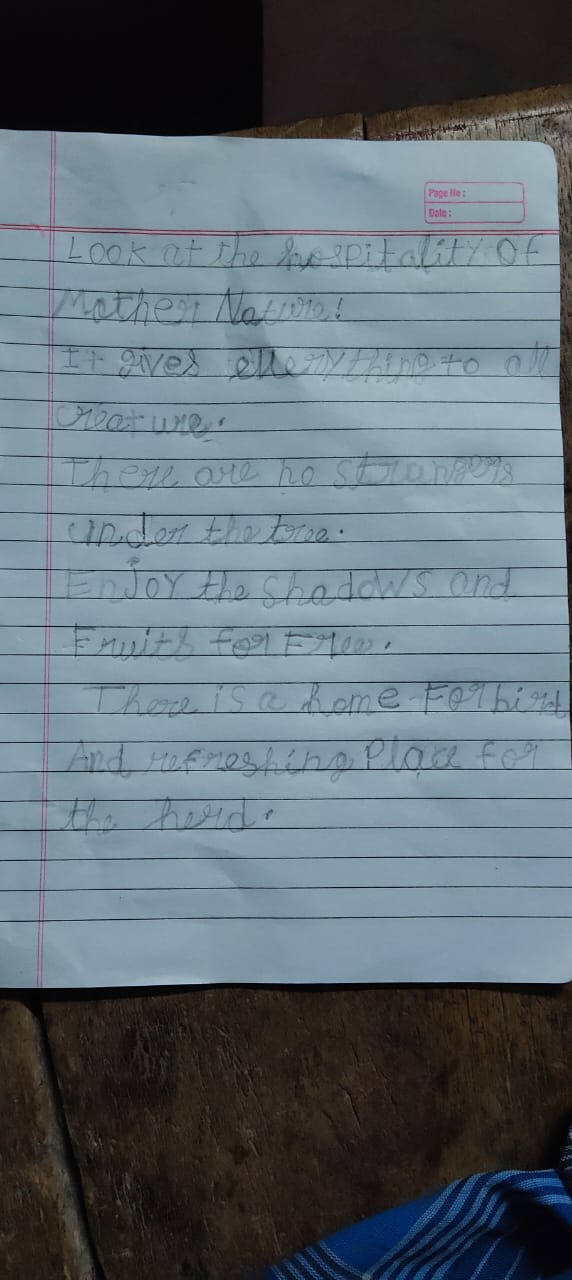 Page No :
Date :
Look at the hospitality of
Mother Nature!
It gives everything to all
creature.
There are no strangers
under the tree.
Enjoy the shadows and
Fruits for Free.
There is a home For bird
And refreshing Place for
the herd.